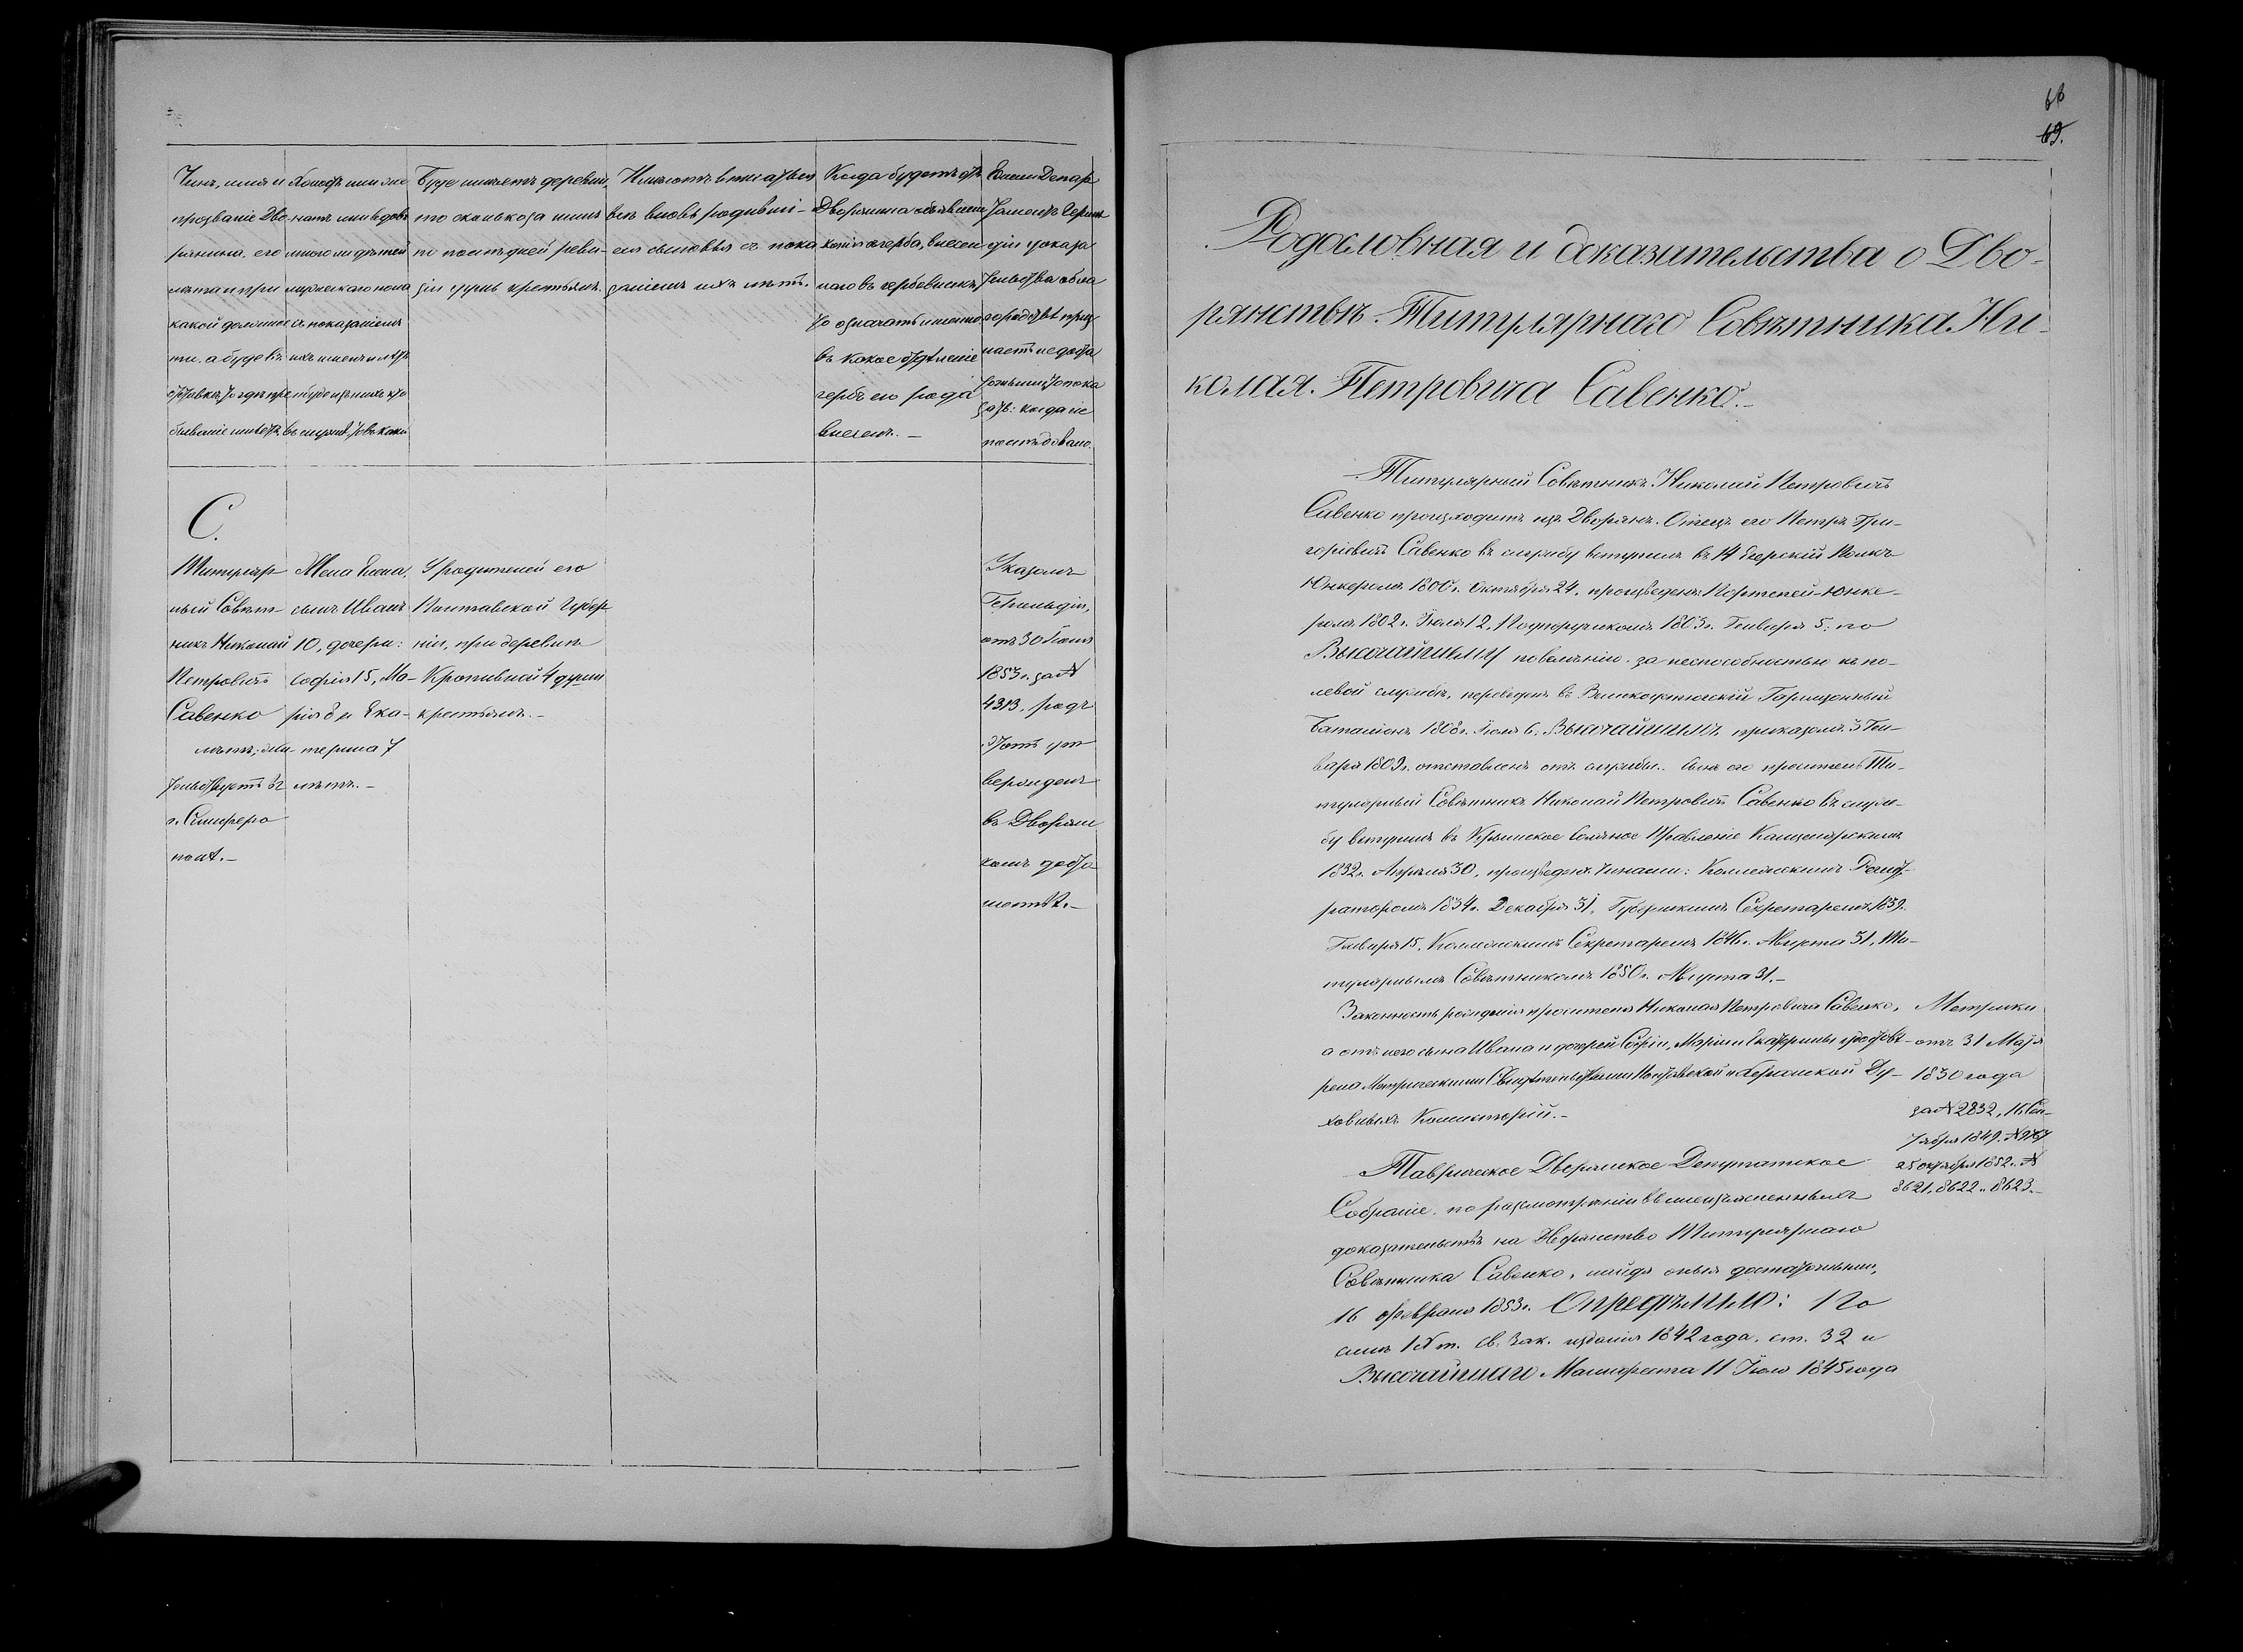 Чинъ, имя и
прозваніе Дво-
рянина. его
лѣта и при
какой должнос
ти. а буде въ
отставкѣ, то гдѣ пре
бываніе имѣетъ
Холостъ или же
натъ или вдовъ
много ли дѣтей
мужескаго пола
съ показаніемъ
ихъ именъ и лѣтъ
Буде имѣетъ деревни,
то сколько за нимъ
по послѣдней реви-
зіи душъ крестьянъ.
вновь родивші-
еся сыновья съ пока
заніемъ ихъ лѣтъ.
Когда будетъ отъ
Дворянина объявлена
копія герба, внесен
наго въ гербовникъ,
то означать именно
въ какое отдѣленіе
гербъ его рода
внесенъ. –
Если Депар
таментъ Героль
діи доказа
тельства обла
городствѣ приз
наетъ недоста
точными, то пока
зать: когда не
послѣдовано.
С.
Титуляр-
ный Совѣт-
никъ Николай
Петровичъ
Савенко
лѣтъ; жи
тельствуетъ въ
г. Симферо
полѣ. –
Жена Елена,
сынъ Иванъ
10, дочери:
Софія 15, Ма-
рія 8 и Ека-
терина 7
лѣтъ. –
У родителей его
Полтавской Губер
ніи, при деревнѣ
Кропивной 4 души
крестьянъ. –
Указомъ
Герольдіи,
отъ 30 Іюня
1853 г. за №
4313, родъ
этотъ ут
вержденъ
въ Дворян
комъ досто
инствѣ. –
66
69.
Родословная и доказательства о Дво-
рянствѣ Титулярнаго Совѣтника Ни-
колая Петровича Савенко. –
Титулярный Совѣтникъ Николай Петровичъ
Савенко происходитъ изъ Дворянъ. Отецъ его Петръ Гри-
горіевичъ Савенко въ службу вступилъ въ 14 Егерскій Полкъ
Юнкеромъ 1800 г. Октября 24, произведенъ Портепей-Юнке-
ромъ 1802 г. Іюля 12, Подпоручикомъ 1803 г. Генваря 5; по
Высочайшему повелѣнію за неспособностью къ по-
левой службѣ, переведенъ въ Гарнизонный
Баталіонъ 1808 г. Іюля 6. Высочайшимъ приказомъ 3 Ген-
варя 1809 г. отставленъ отъ службы. Сынъ его проситель Ти-
тулярный Совѣтникъ Николай Петровичъ Савенко въ служ-
бу вступилъ въ Крымское Соляное Правленіе Канцелярскимъ
1832 г. Апрѣля 30, произведенъ Чинами: Коллежскимъ Регист-
раторомъ 1834 г. Декабря 31, Губернскимъ Секретаремъ 1839 г.
Генваря 15, Коллежскимъ Секретаремъ 1846 г. Августа 31, Ти-
тулярнымъ Совѣтникомъ 1850 г. Августа 31. –
Законность рожденія просителя Николая Петровича Савенко,
а отъ него сына Ивана и дочерей Софіи, Маріи и Екатерины удостовѣ-
рена Метрическими Свидѣтельствами Полтавской и Херсонской Ду-
ховныхъ Консисторій. –
Метрики
отъ 31 Мая
1830 года
за № 2832, 16 Сен-
тября 1849. № 9767
25 октября 1852 г. №
8621, 8622 и 8623. –
Таврическое Дворянское Депутатское
Собраніе, по разсмотрѣніи вышеизъясненныхъ
доказательствъ на Дворянство Титулярнаго
Совѣтника Савенко, найдя оныя достаточными,
16 февраля 1853 г. Опредѣлило: По
силѣ IX т. Св. Зак. изданія 1842 года. ст. 32 и
Высочайшаго Манифеста 11 Іюня 1845 года